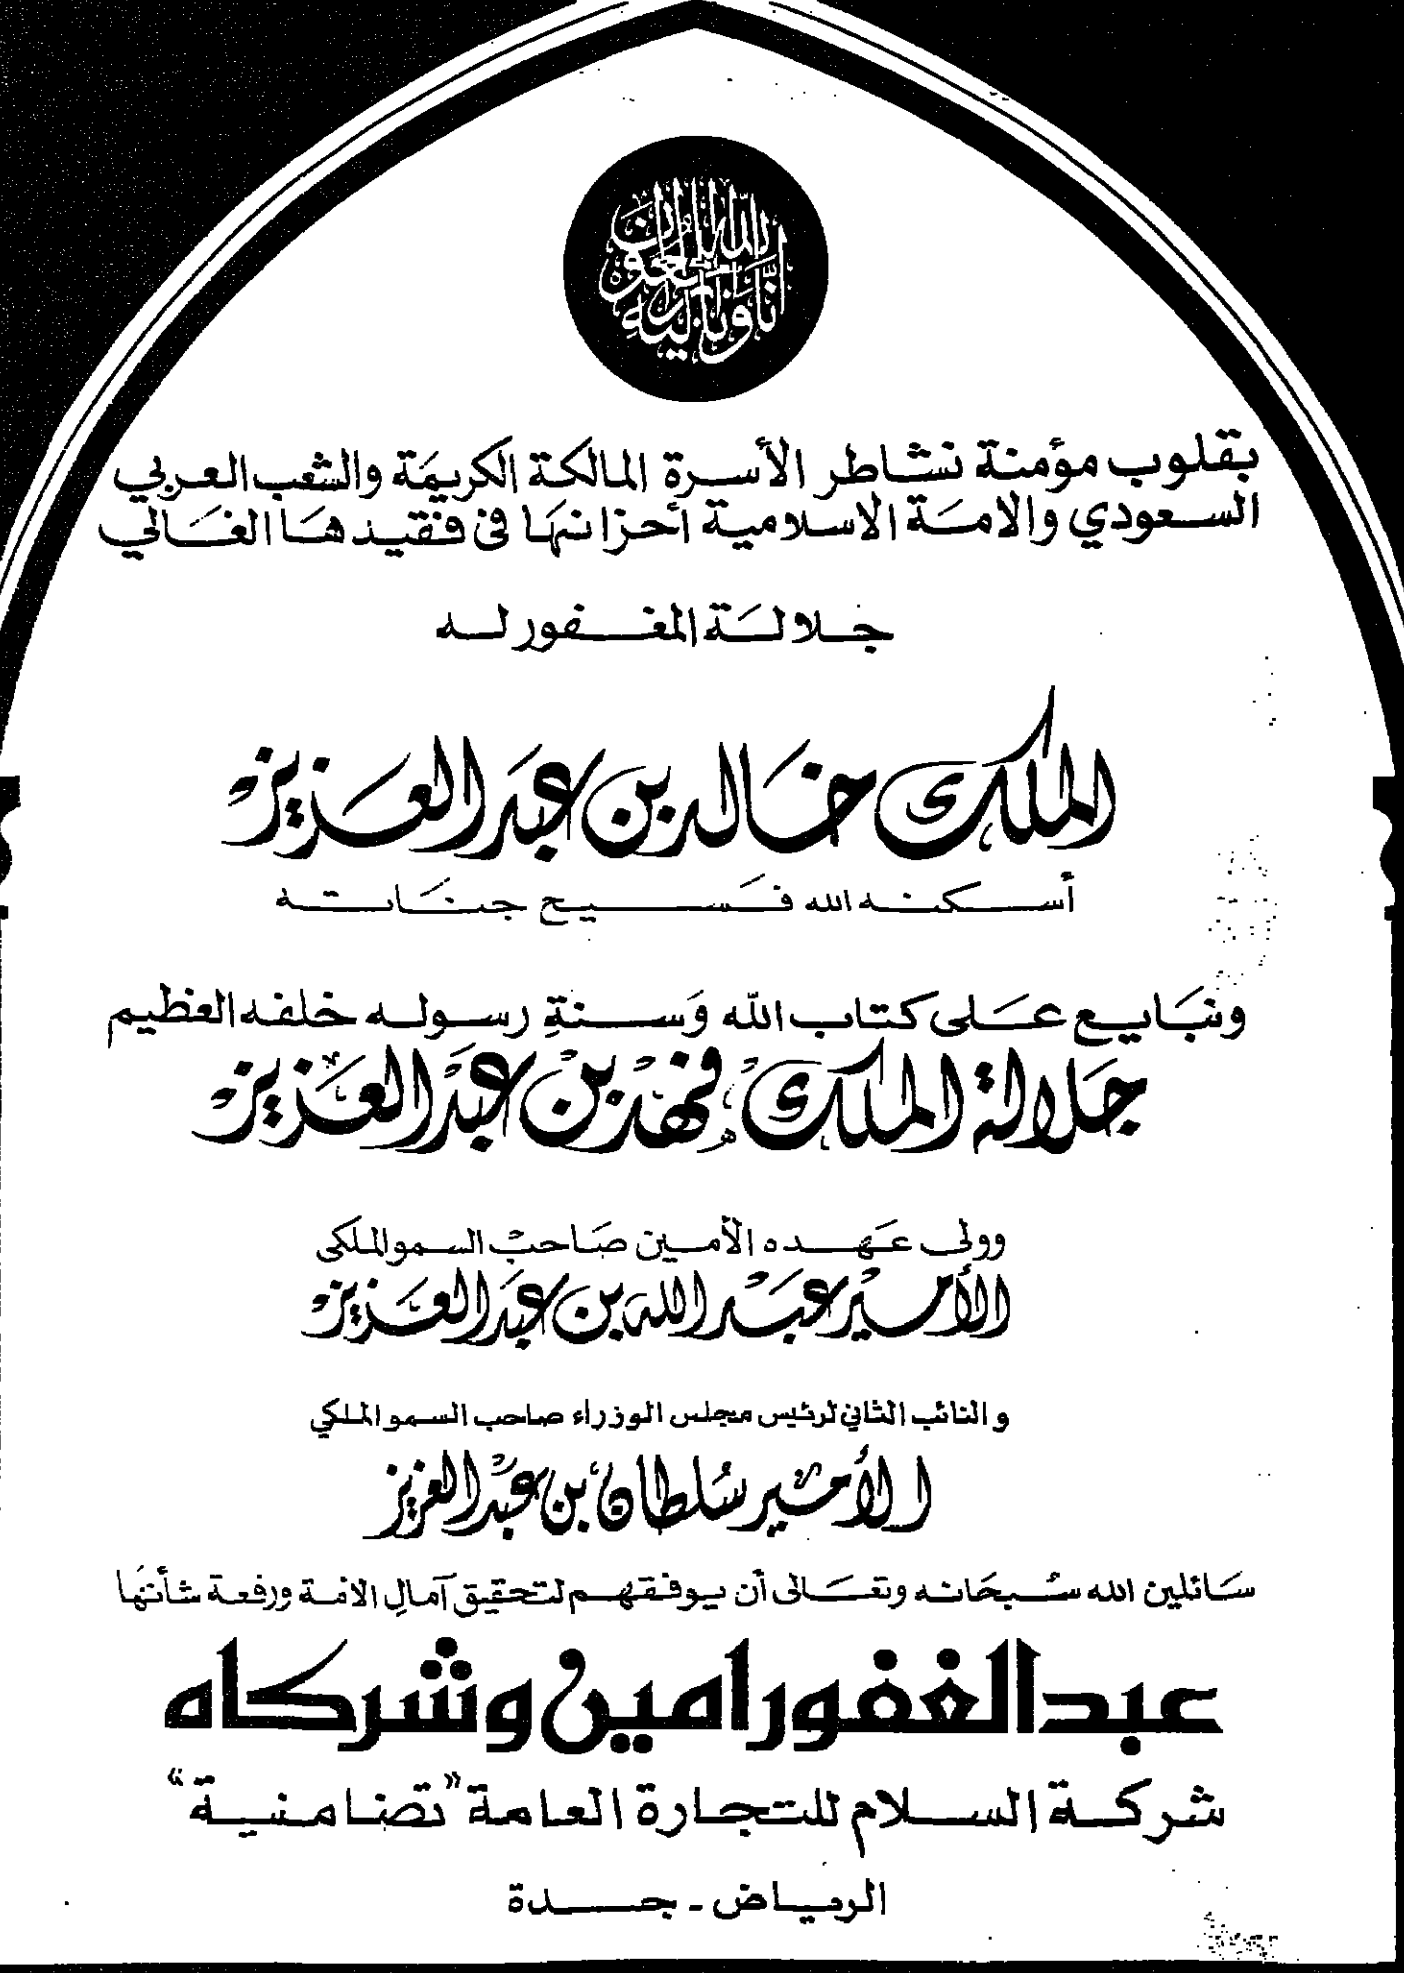 إنا لله وإنا إليه راجعون
بقلوب مؤمنة نشاطر الأسرة المالكة الكريمَة والشعب العربي
السعودي والامَة الاسلامية أحزانهَا في فقيدهَا الغَالي
جلالَة المغفور له
الملك خَالد بن عبد العَزيز
أسكنه الله فسَيح جنَاته
ونبَايع عَلى كتاب الله وَسنةِ رسوله خلفه العظيم
جَلالة الملك فهد بن عبد العَزيز
وولى عَهده الأمين صَاحب السمو الملكى
الأمير عبَد الله بن عبَد العَزيز
والنائب الثاني لرئيس مجلس الوزراء صاحب السمو الملكي
الأمير سُلطان بن عبد العزيز
سَائلين الله سُبحَانه وتعَالى أن يوفقهم لتحقيق آمالِ الامة ورفعة شأنهَا
عبد الغفور امين وشركاه
شركة السلام للتجارة العامة "تضامنية"
الرياض - جدة